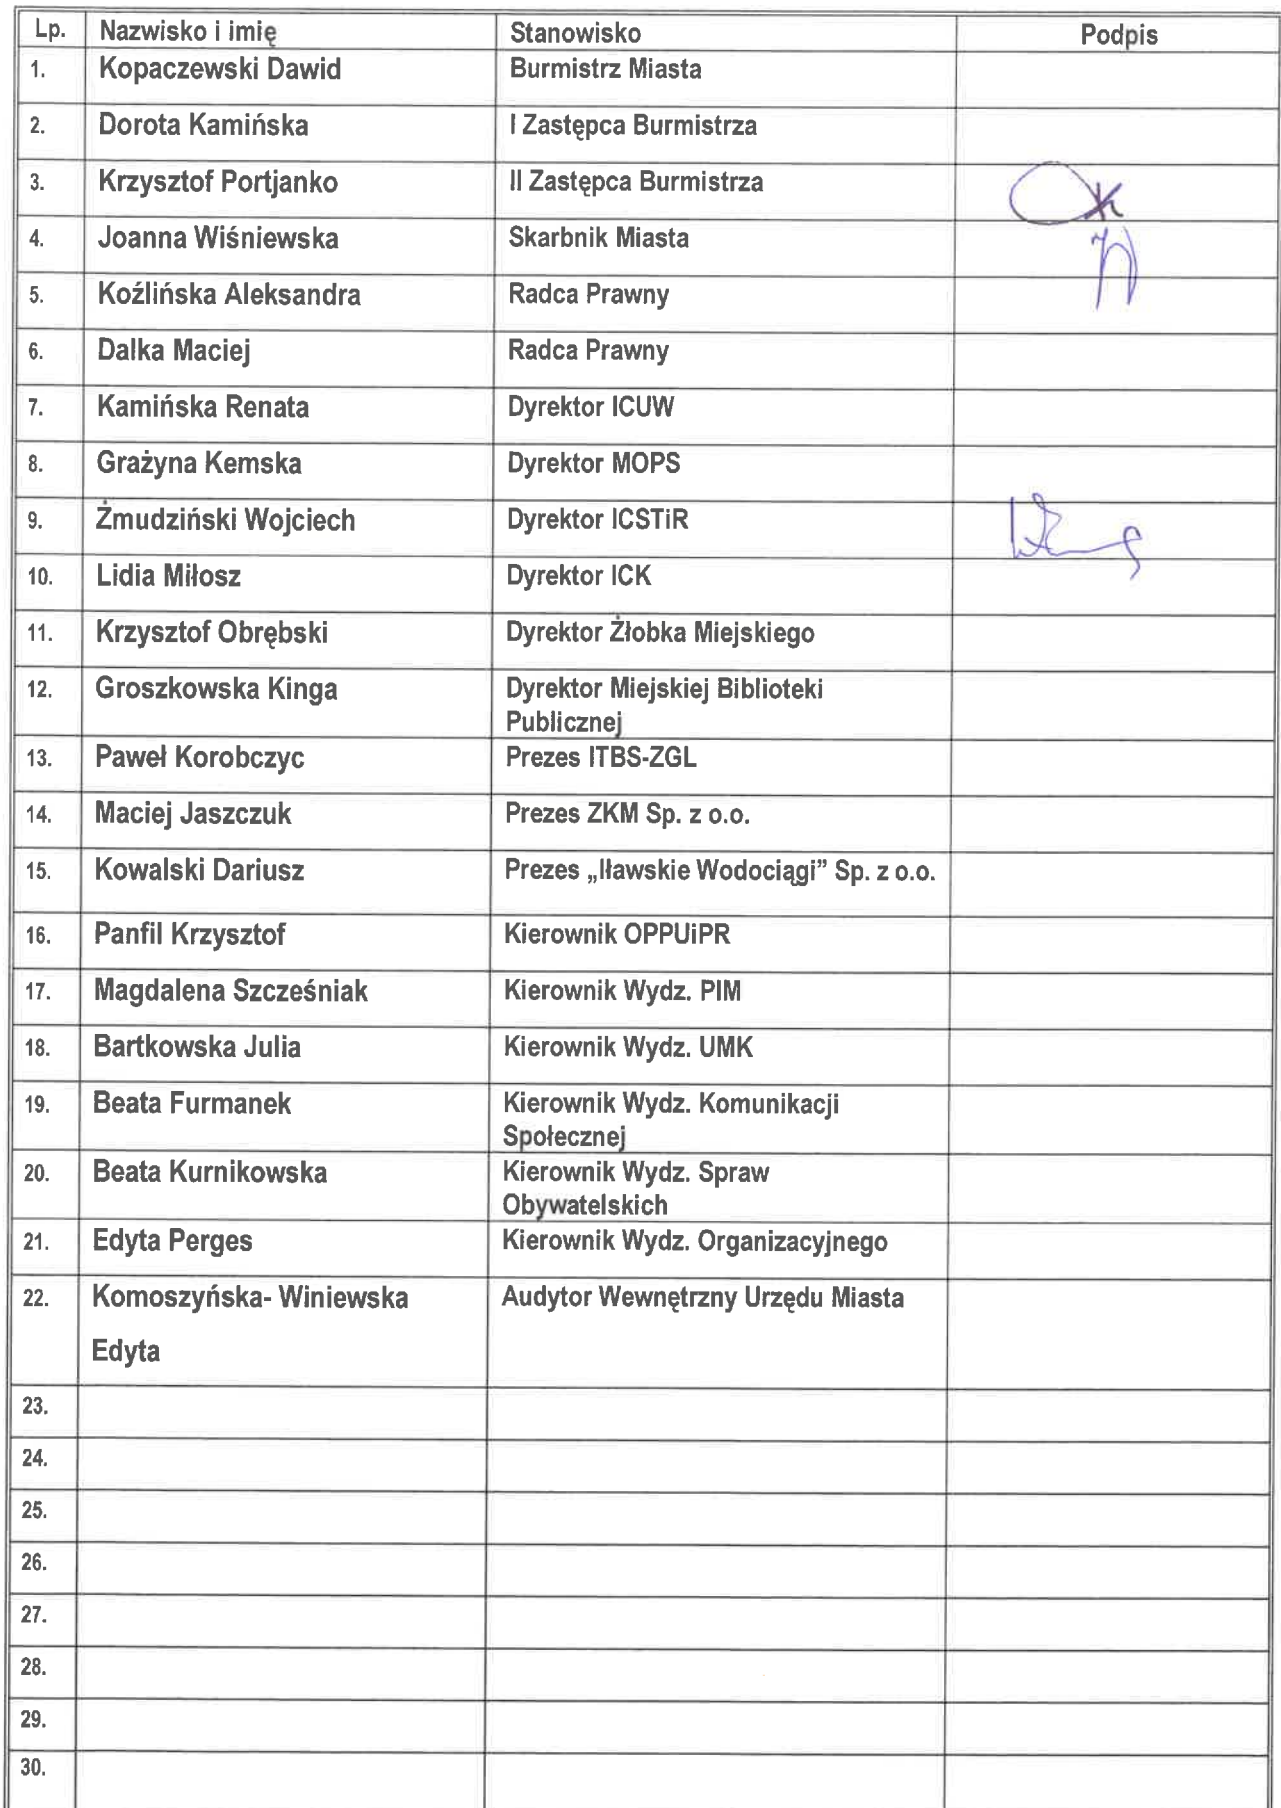 Lp. Nazwisko i imię Stanowisko Podpis
1. Kopaczewski Dawid Burmistrz Miasta
2. Dorota Kamińska I Zastępca Burmistrza
3. Krzysztof Portjanko II Zastępca Burmistrza
4. Joanna Wiśniewska Skarbnik Miasta
5. Koźlińska Aleksandra Radca Prawny
6. Dalka Maciej Radca Prawny
7. Kamińska Renata Dyrektor ICUW
8. Grażyna Kemska Dyrektor MOPS
9. Żmudziński Wojciech Dyrektor ICSTiR
10. Lidia Miłosz Dyrektor ICK
11. Krzysztof Obrębski Dyrektor Żłobka Miejskiego
12. Groszkowska Kinga Dyrektor Miejskiej Biblioteki
Publicznej
13. Paweł Korobczyc Prezes ITBS-ZGL
14. Maciej Jaszczuk Prezes ZKM Sp. z o.o.
15. Kowalski Dariusz Prezes „Iławskie Wodociągi” Sp. z o.o.
16. Panfil Krzysztof Kierownik OPPUiPR
17. Magdalena Szcześniak Kierownik Wydz. PIM
18. Bartkowska Julia Kierownik Wydz. UMK
19. Beata Furmanek Kierownik Wydz. Komunikacji
Społecznej
20. Beata Kurnikowska Kierownik Wydz. Spraw
Obywatelskich
21. Edyta Perges Kierownik Wydz. Organizacyjnego
22. Komoszyńska- Winiewska Audytor Wewnętrzny Urzędu Miasta
Edyta
23.
24.
25.
26.
27.
28.
29.
30.